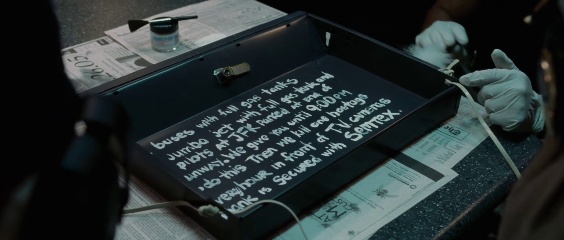 buses with full gas tanks
Jumbo Jet with full gas tank and
pilots at JFK parked at one of
unway. We give you until 9:00 PM
do this. Then we kill one hostage
very hour in front of TV cameras
ank is secured with SEMTEX.